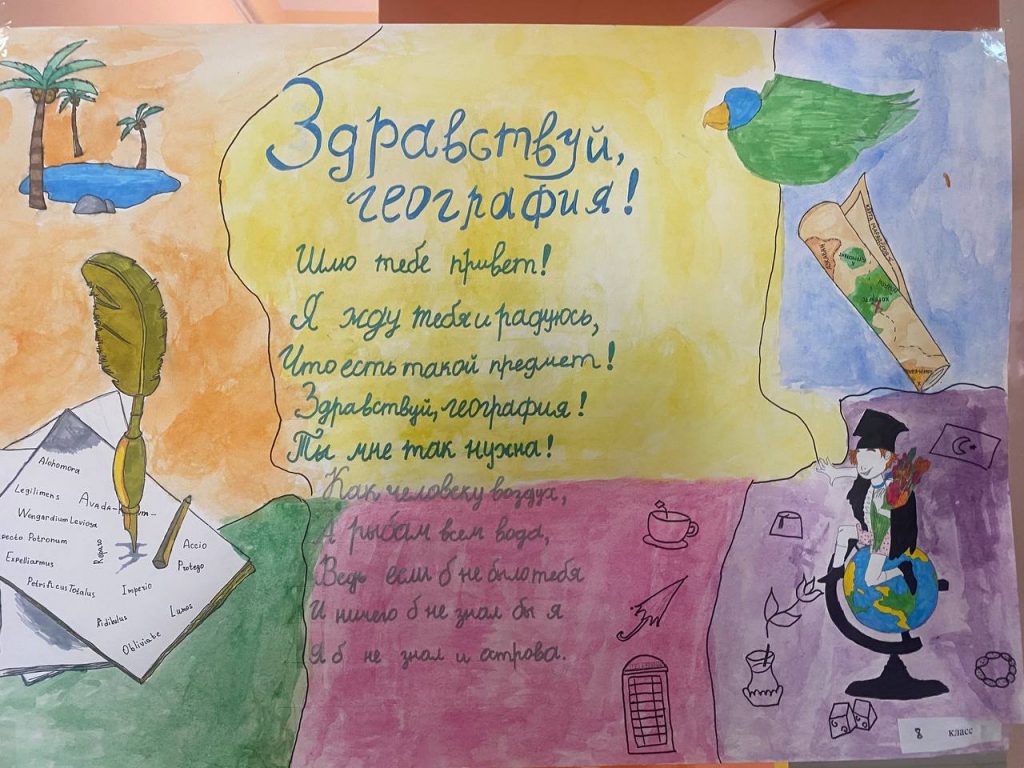 Здравствуй,
география!
Шлю тебе привет!
Я жду тебя и радуюсь,
Что есть такой предмет!
Здравствуй, география!
Ты мне так нужна!
Как человеку воздух,
А рыбам всем вода,
Ведь если б не было тебя
И ничего б не знал бы я
Я б не знал и острова.
Alohomora
Legilimens
Avada-
Wengardium Leviosa
pecto Patronum
Reparo
Accio
Expelliarmus
Protego
Petrificus Totalus
Imperio
Lumos
Ridikulus
Obliviate
8 класс